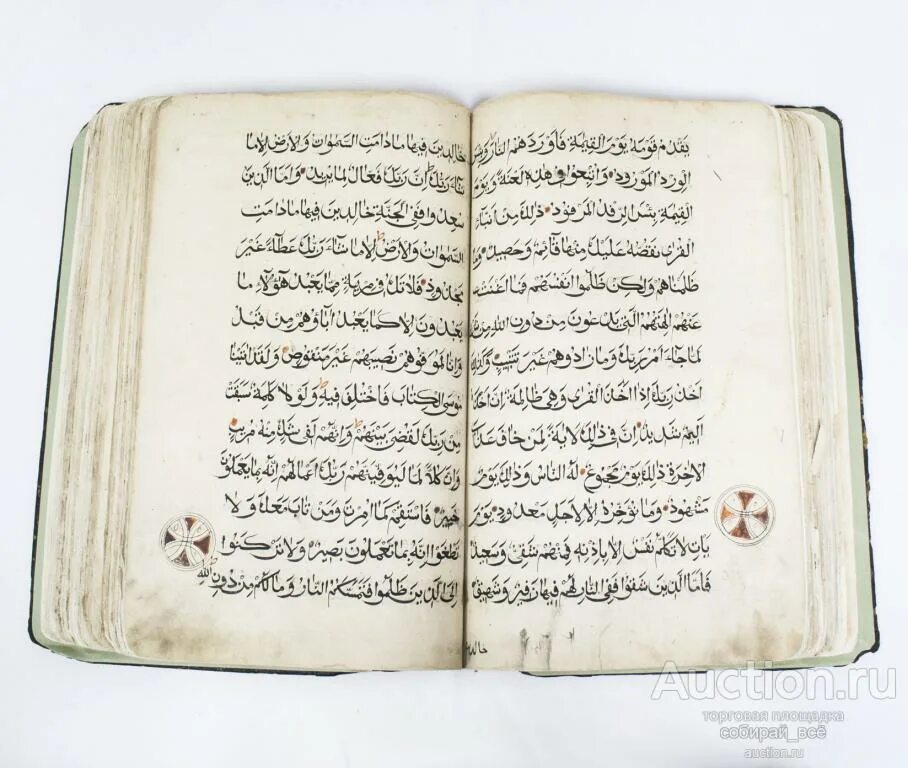 يَقْدُمُ قَوْمَهُ يَوْمَ الْقِيمَةِ فَاَوْرَدَهُمُ النَّارَ وَبِئْسَ
الْوِرْدُ الْمَوْرُودُ وَاُتْبِعُوا فِي هٰذِهِ لَعْنَةً وَيَوْمَ
الْقِيمَةِ بِئْسَ الرِّفْدُ الْمَرْفُودُ ذٰلِكَ مِنْ اَنْبَاءِ
الْقُرٰى نَقُصُّهُ عَلَيْكَ مِنْهَا قَائِمٌ وَحَصِيدٌ وَمَا
ظَلَمْنَاهُمْ وَلٰكِنْ ظَلَمُوا اَنْفُسَهُمْ فَمَا اَغْنَتْ
عَنْهُمْ اٰلِهَتُهُمُ الَّتِي يَدْعُونَ مِنْ دُونِ اللّٰهِ مِنْ
لَمَّا جَاءَ اَمْرُ رَبِّكَ وَمَا زَادُوهُمْ غَيْرَ تَتْبِيبٍ وَكَذٰلِكَ
اَخْذُ رَبِّكَ اِذَا اَخَذَ الْقُرٰى وَهِيَ ظَالِمَةٌ اِنَّ اَخْذَهُ
اَلِيمٌ شَدِيدٌ اِنَّ فِي ذٰلِكَ لَاٰيَةً لِمَنْ خَافَ عَذَابَ
الْاٰخِرَةِ ذٰلِكَ يَوْمٌ مَجْمُوعٌ لَهُ النَّاسُ وَذٰلِكَ يَوْمٌ
مَشْهُودٌ وَمَا نُؤَخِّرُهُ اِلَّا لِاَجَلٍ مَعْدُودٍ يَوْمَ
يَاْتِ لَا تَكَلَّمُ نَفْسٌ اِلَّا بِاِذْنِهِ فَمِنْهُمْ شَقِيٌّ وَسَعِيدٌ
فَاَمَّا الَّذِينَ شَقُوا فَفِي النَّارِ لَهُمْ فِيهَا زَفِيرٌ وَشَهِيقٌ
خالدين
خَالِدِينَ فِيهَا مَا دَامَتِ السَّمٰوَاتُ وَالْاَرْضُ اِلَّا مَا
شَاءَ رَبُّكَ اِنَّ رَبَّكَ فَعَّالٌ لِمَا يُرِيدُ وَاَمَّا الَّذِينَ
سُعِدُوا فَفِي الْجَنَّةِ خَالِدِينَ فِيهَا مَا دَامَتِ
السَّمٰوَاتُ وَالْاَرْضُ اِلَّا مَا شَاءَ رَبُّكَ عَطَاءً غَيْرَ
مَجْذُوذٍ فَلَا تَكُ فِي مِرْيَةٍ مِمَّا يَعْبُدُ هٰؤُلَاءِ مَا
يَعْبُدُونَ اِلَّا كَمَا يَعْبُدُ اٰبَاؤُهُمْ مِنْ قَبْلُ
وَاِنَّا لَمُوَفُّوهُمْ نَصِيبَهُمْ غَيْرَ مَنْقُوصٍ وَلَقَدْ اٰتَيْنَا
مُوسَى الْكِتَابَ فَاخْتُلِفَ فِيهِ وَلَوْلَا كَلِمَةٌ سَبَقَتْ
مِنْ رَبِّكَ لَقُضِيَ بَيْنَهُمْ وَاِنَّهُمْ لَفِي شَكٍّ مِنْهُ مُرِيبٍ
وَاِنَّ كُلًّا لَمَّا لَيُوَفِّيَنَّهُمْ رَبُّكَ اَعْمَالَهُمْ اِنَّهُ بِمَا يَعْمَلُونَ
خَبِيرٌ فَاسْتَقِمْ كَمَا اُمِرْتَ وَمَنْ تَابَ مَعَكَ وَلَا
تَطْغَوْا اِنَّهُ بِمَا تَعْمَلُونَ بَصِيرٌ وَلَا تَرْكَنُوا
اِلَى الَّذِينَ ظَلَمُوا فَتَمَسَّكُمُ النَّارُ وَمَا لَكُمْ مِنْ دُونِ اللّٰهِ
Auction.ru
торговая площадка
собирай_всё
auction.ru